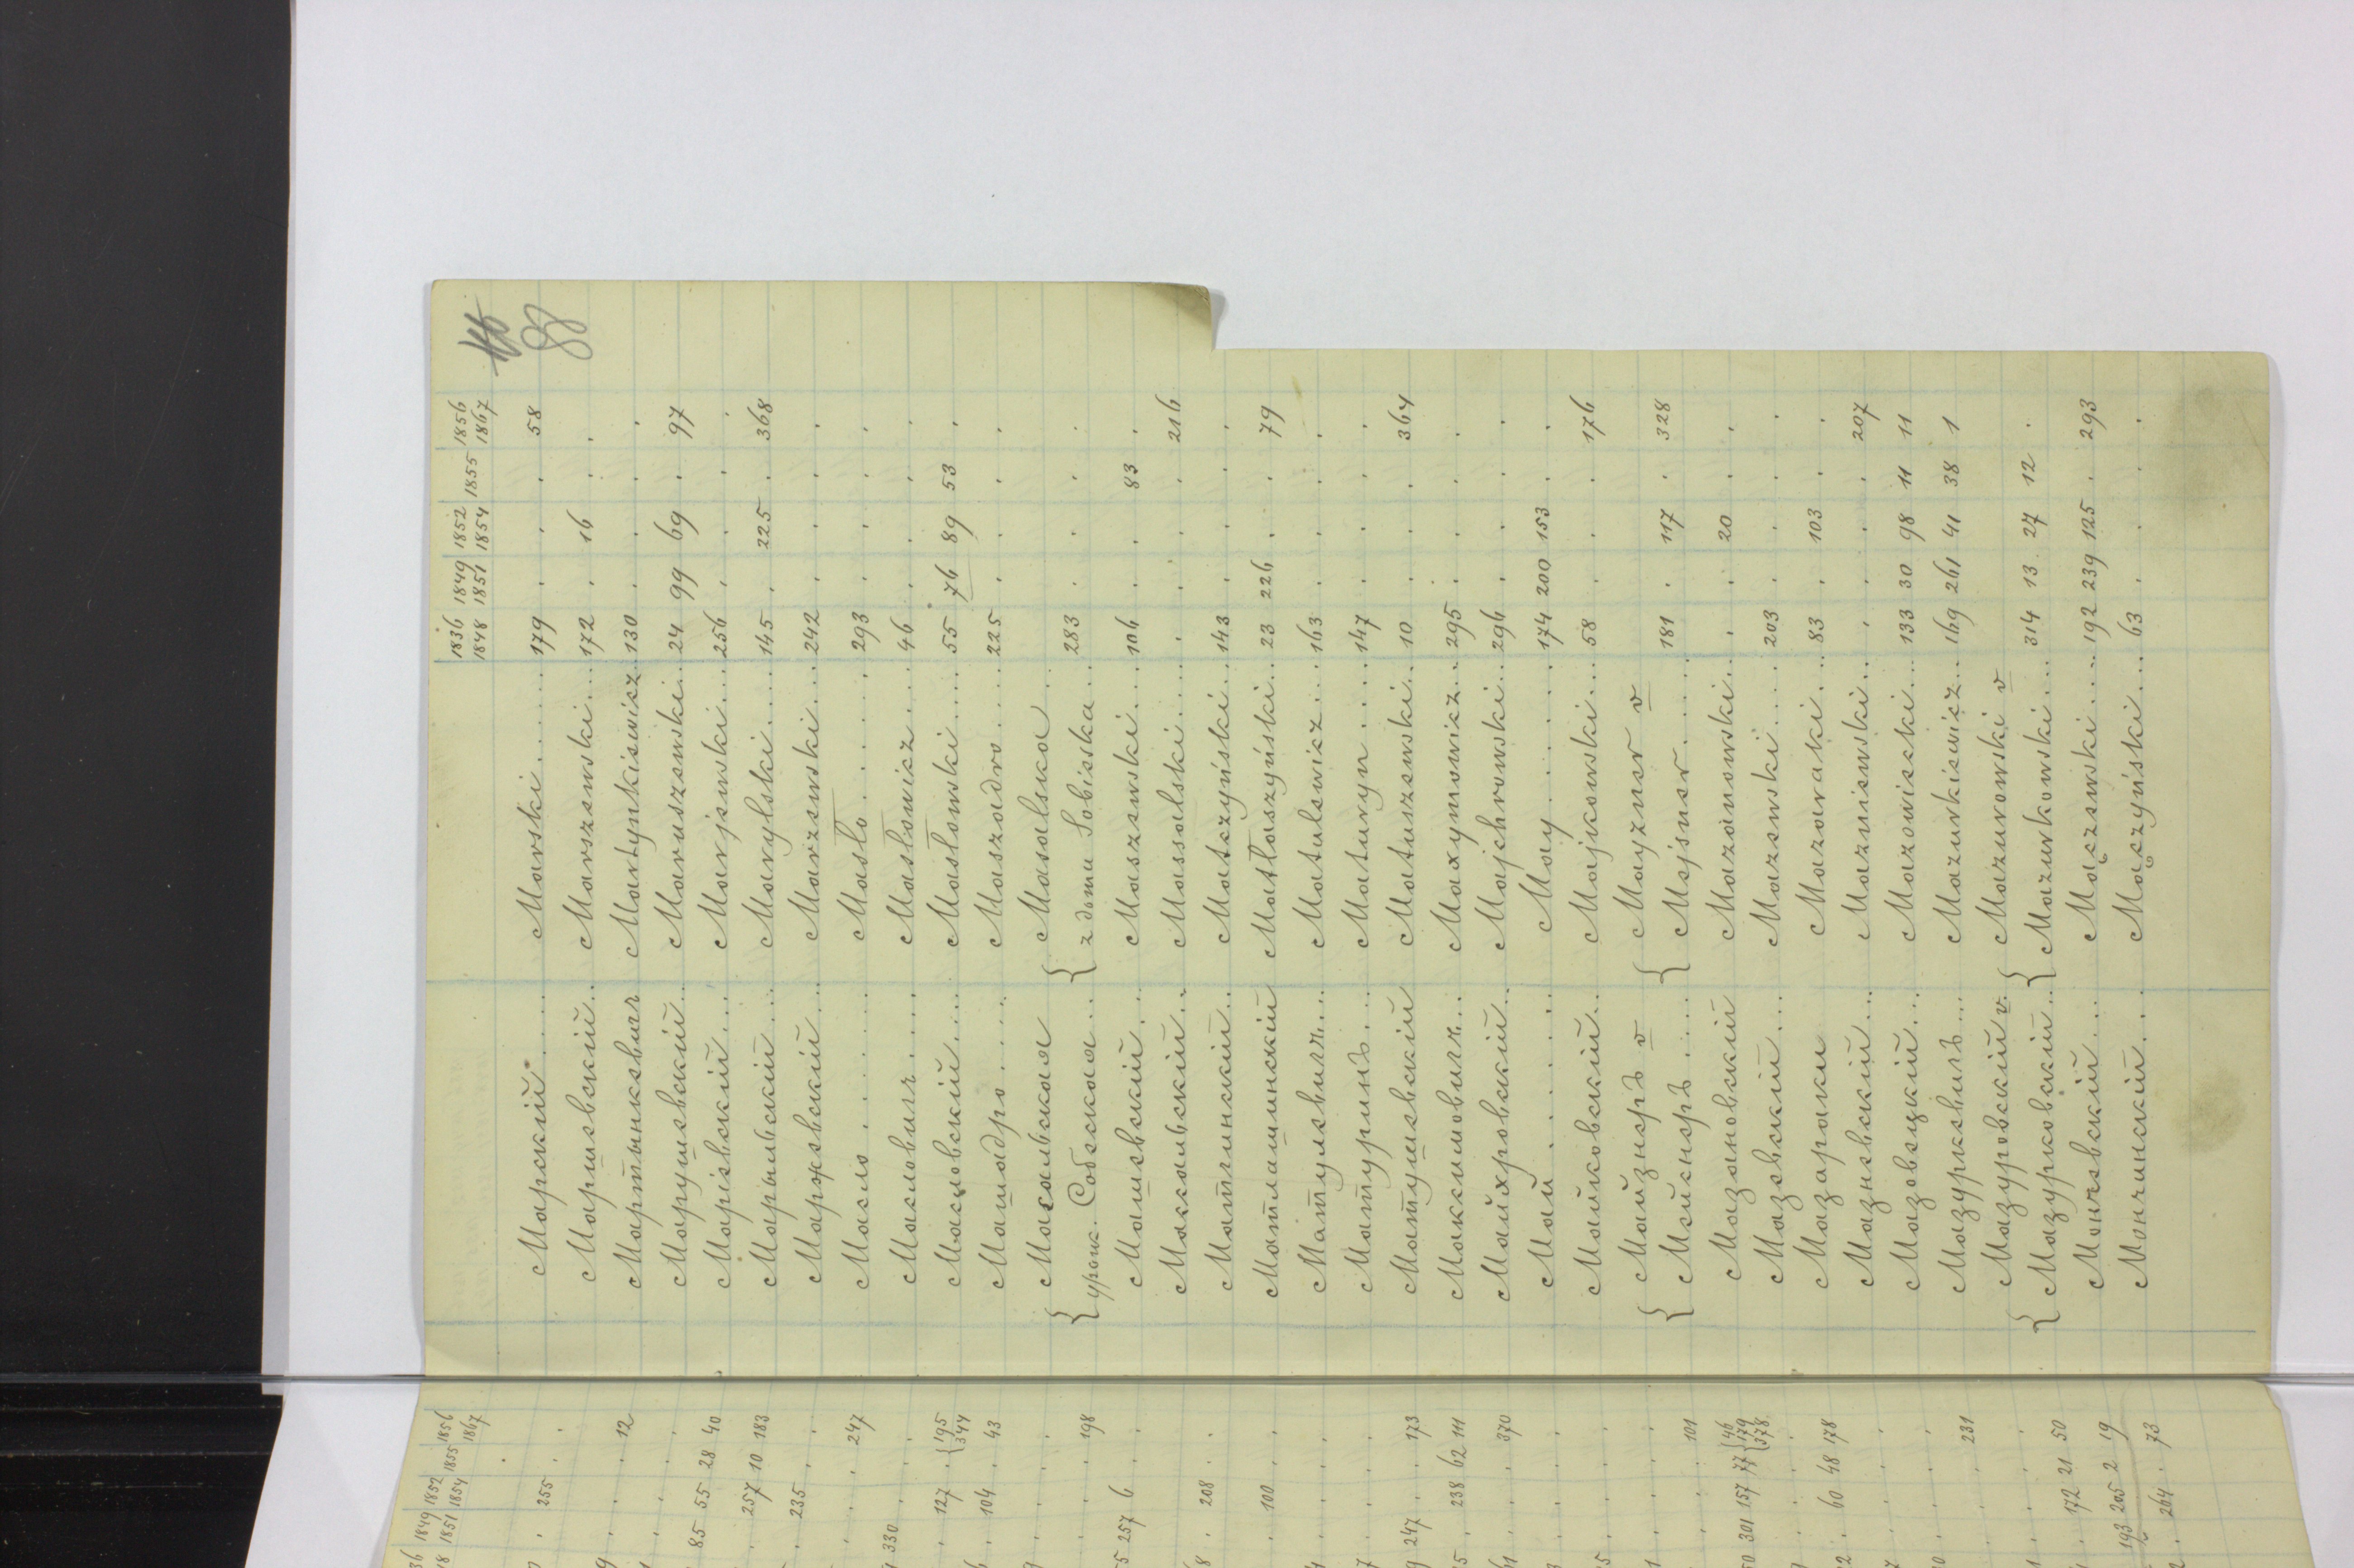 88
1836 1849 1852 1856
1848 1851 1854 1855 1867
Марскій . . . . Marski . . . . . . 179 . . . 58
Маршевскій . . Marszewski . . . 172 . 16 . .
Мартынкевич Martynkiewicz . . 130 . . . .
Марушевскій . . Maruszewski . . . 24 99 69 . 97
Маріевскій . . . Marjewski . . . . 256 . . . .
Марыльскій . . . Marylski . . . . . 145 . 225 . 368
Маржевскій . . . Marzewski . . . 242 . . . .
Масло . . . . . . Masło . . . . . . 293 . . . .
Маслович . . . . Masłowicz . . . . 46 . . . .
Масловскій . . . . Masłowski . . . . 55 76 89 53 .
Машадро . . . . . Maszadro . . . . 225 . . . .
{ Масальская Masalska . . .
урож. Собеская . . . { z domu Sobieska . . 283 . . . .
Машевскій . . . Maszewski . . . 106 . . 83 .
Массальскій . . . Massalski . . . . . . . . 216
Матчинскій . . . Matczyński . . . 143 . . . .
Матлашинскій Matłaszyński . . . 23 226 . . 79
Матулевич . . . Matulewicz . . . 163 . . . .
Матуринъ . . . . Maturyn . . . . . 147 . . . .
Матушевскій Matuszewski . . . 10 . . . 364
Максимович . . . Maxymowicz . . . 295 . . . .
Майхровскій . . Majchrowski . . . 296 . . . .
Май . . . . . . . May . . . . . . . 174 200 153 . .
Майковскій . . . Majkowski . . . . 58 . . . 176
{ Майзнеръ v { Mayzner v
Мейснеръ . . . . Mejsner . . . . . 181 . 117 . 328
Мазановскій Mazanowski . . . . . 20 . .
Мазевскій . . . . Mazewski . . . . 203 . . . .
Мазараки Mazaraki . . . . 83 . 103 . .
Мазневскій . . . Mazniewski . . . . . . . 207
Мазовецкій . . . Mazowiecki . . . 133 30 98 11 11
Мазуркевичъ . . . Mazurkiewicz . . . 169 261 41 38 1
{ Мазуровскій v. { Mazurowski v
Мазурковскій . . Mazurkowski . . . 314 13 27 12 .
Мончевскій . . . Mączewski . . . . 192 239 125 . 293
Мончинскій . . . Mączyński . . . . 63 . . . .
1849 1852 1856
1851 1854 1855 1867
255 . .
12
85 55 28 40
257 10 183
235 . .
247
330 . . .
127 . { 195
344
104 . 43
198
257 6 . .
208 . .
100 . .
247 . . 173
238 62 111
370
101
301 157 77 { 46
179
378
60 48 178
231
172 21 50
193 205 2 19
264 . 73